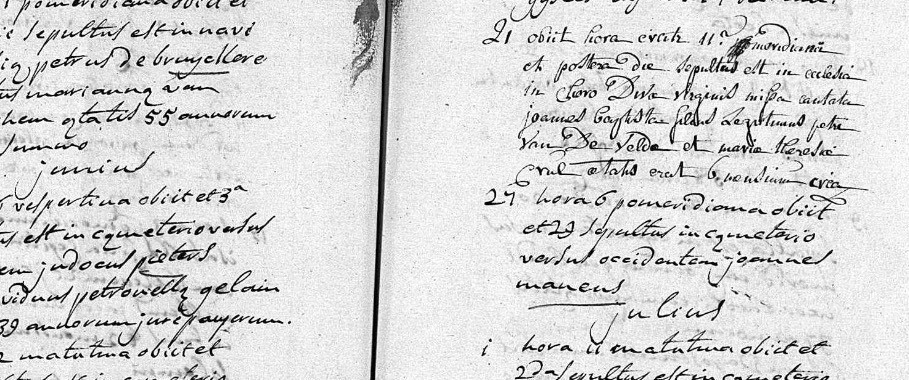 pomeridiana obiit et
sepultus est in navi
petrus de bruyckere
marianna van
hem ætatis 55 annorum
junius
vespertina obiit et 3ª
est in cymeterio versus
judocus pieters
viduus petronellæ gelain
39 annorum jure pauperum.
2 matutina obiit et
21 obiit hora circiter 11ª pomeridiana
et postera die sepultus est in ecclesia
in Choro Divæ virginis missa cantata
joannes baptista filius Legitimus petri
van De Velde et mariæ theresiæ
ætatis erat 6 mensium circa
27 hora 6 pomeridiana obiit
et 29 sepultus in cymeterio
versus occidentem joannes
maneus
julius
1 hora 11 matutina obiit et
2da sepultus est in cymeterio